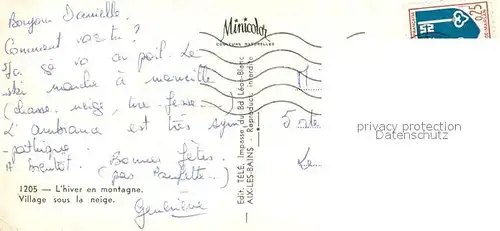 Bonjour Danielle.
Comment vas tu ?
Ici ça va au poil. Le
ski marche à merveille
(chasse neige, tire-fesse...)
L'ambiance est très sym
-pathique.
A Bientôt. Bonnes fêtes.
(pas Paupette...)
Geneviève
1205 — L'hiver en montagne.
Village sous la neige.
Minicolor
COULEURS NATURELLES
Edit. TÉLÉ, Impasse du Bd Léon-Blanc
AIX-LES-BAINS — Reproduct. interdite
0,25
privates Copyright
Datenschutz